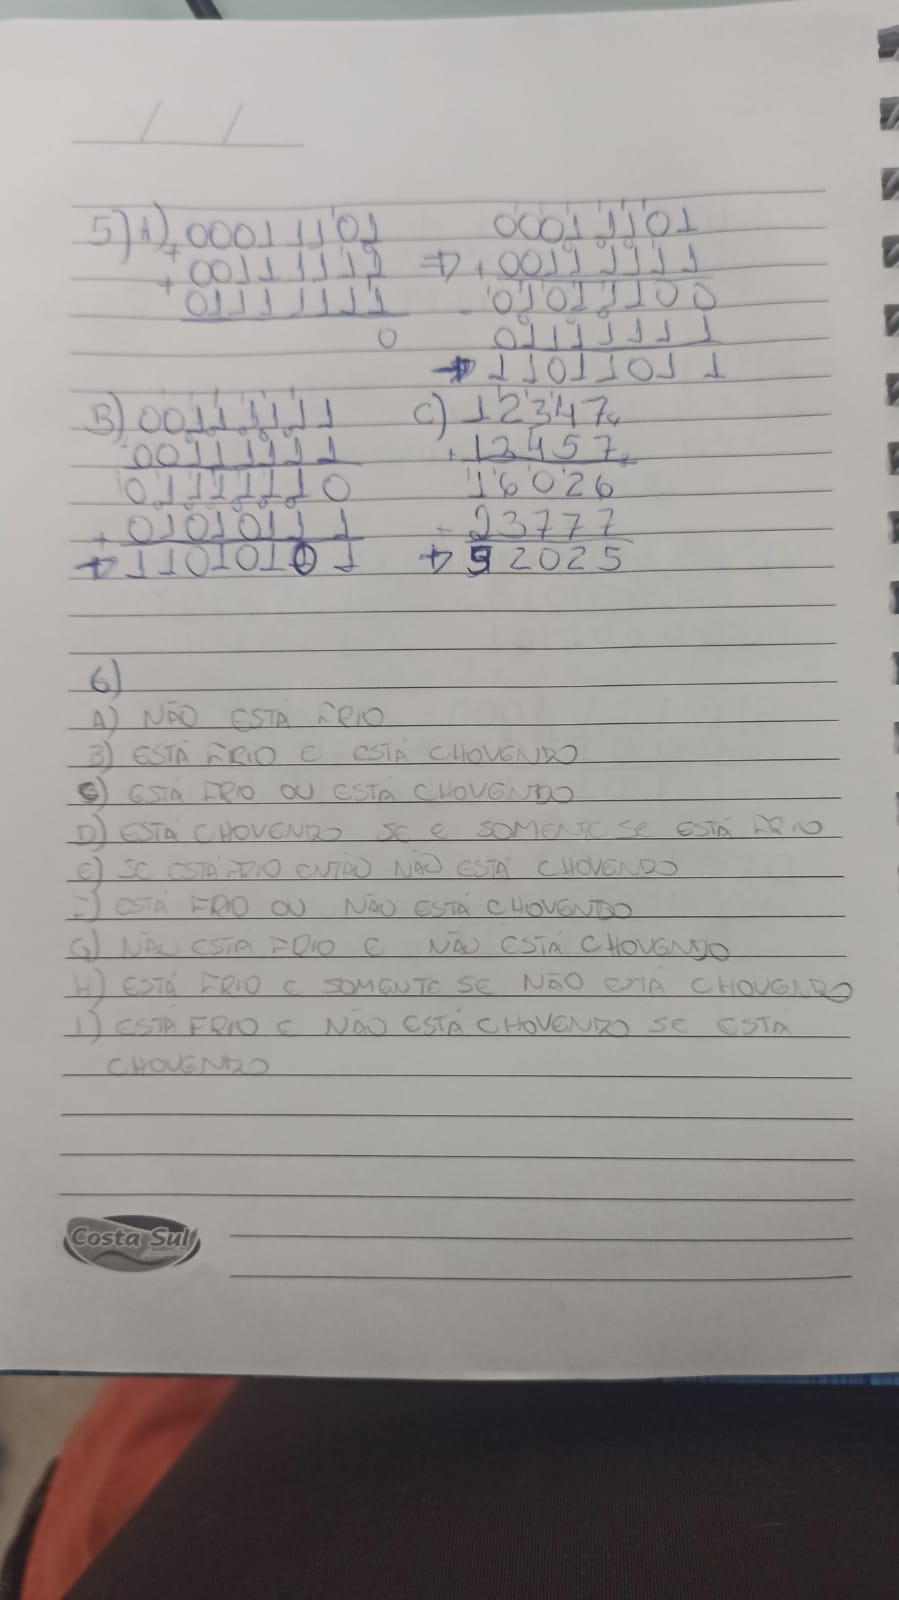 / /
5) A) 00011101 00011101
+ 00111111 ⇒ + 00111111
+ 01111111 01011100
0 01111111
→ 11011011
B) 00111111 C) 12347
00111111 + 12457
01111110 16026
+ 01010111 23777
→ 11010101 → 52025
6)
A) NÃO ESTÁ FRIO
B) ESTÁ FRIO E ESTÁ CHOVENDO
C) ESTÁ FRIO OU ESTÁ CHOVENDO
D) ESTÁ CHOVENDO SE E SOMENTE SE ESTÁ FRIO
E) SE ESTÁ FRIO ENTÃO NÃO ESTÁ CHOVENDO
F) ESTÁ FRIO OU NÃO ESTÁ CHOVENDO
G) NÃO ESTÁ FRIO E NÃO ESTÁ CHOVENDO
H) ESTÁ FRIO E SOMENTE SE NÃO ESTÁ CHOVENDO
I) ESTÁ FRIO E NÃO ESTÁ CHOVENDO SE ESTA
CHOVENDO
Costa Sul